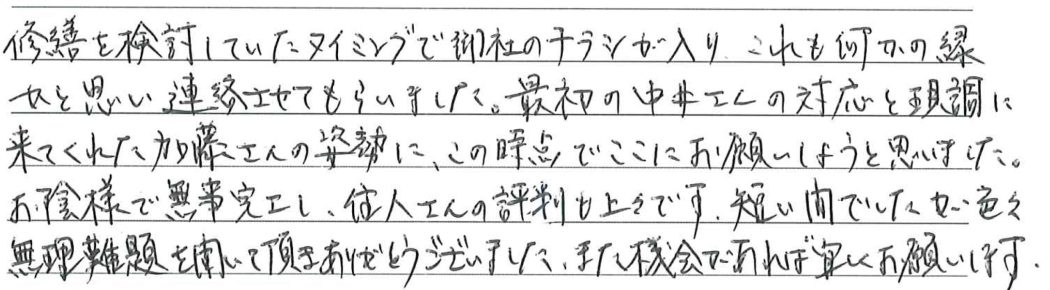 修繕を検討していたタイミングで御社のチラシが入り これも何かの縁
かと思い連絡させてもらいました。最初の中井さんの対応と現調に
来てくれた加藤さんの姿勢に、この時点でここにお願いしようと思いました。
お陰様で無事完工し、住人さんの評判も上々です。短い間でしたが色々
無理難題を聞いて頂きありがとうございました。また機会であれば宜しくお願いします.